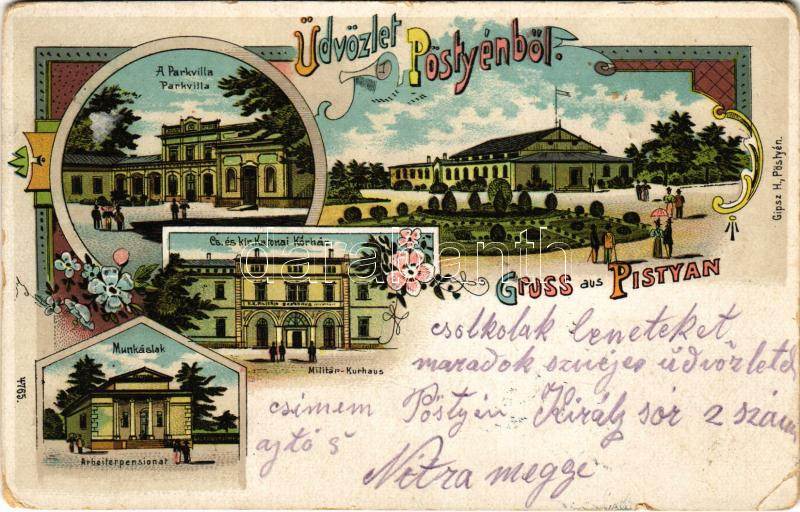 Üdvözlet
Pöstyénből.
A Parkvilla
Parkvilla
Gipsz H., Pöstyén.
Cs. és kir. Katonai Kórház
darabanth
Gruss aus Pistyan
Militär-Kurhaus
Munkáslak
Arbeiterpensionat
4765.
csolkolak leneteket
maradok szivejes üdvözletel
csimem Pöstyén Király sor 2 szám
ajtó 5
Nitra megye